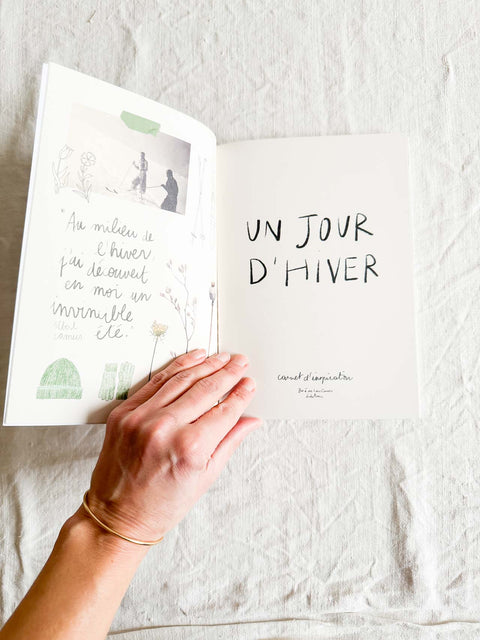 "Au milieu de
l'hiver,
j'ai découvert
en moi un
invincible
été."
albert
camus
UN JOUR
D'HIVER
carnet d'inspiration